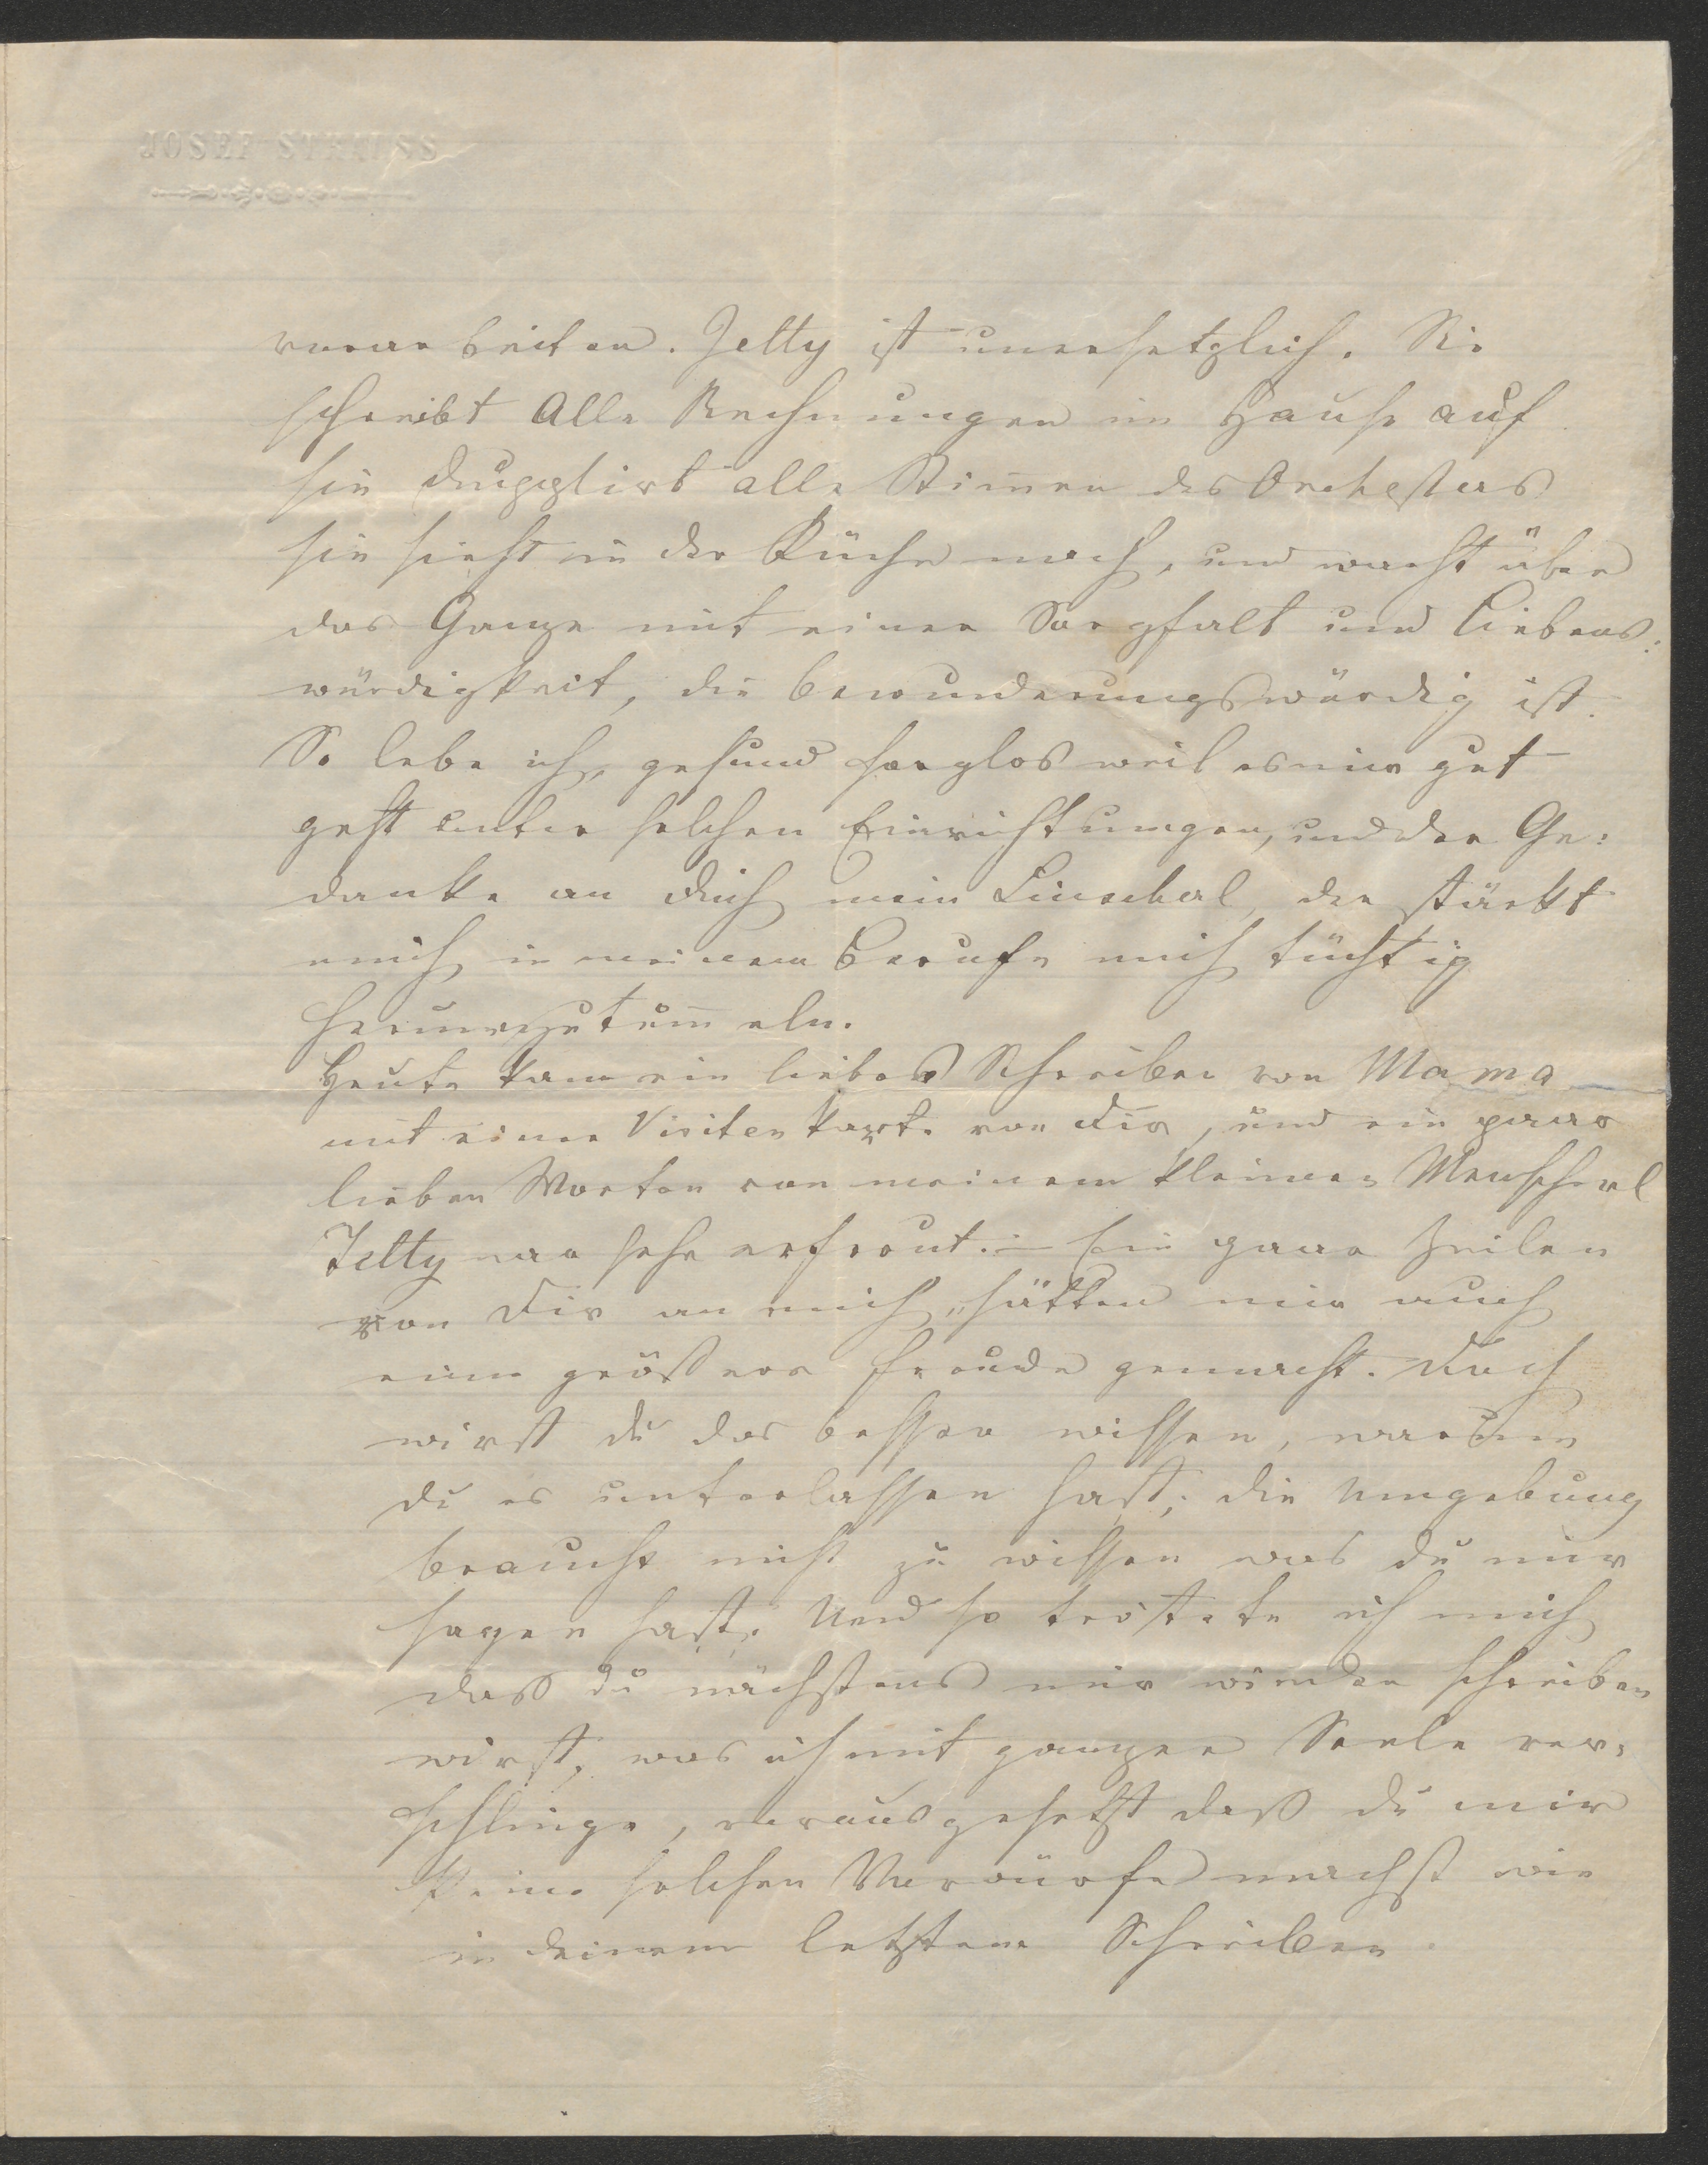 JOSEF STRAUSS
vorarbeiten. Jetty ist unersetzlich. Sie
schreibt Alle Rechnungen im Hause auf
sie dupplirt alle Stim̅en des Orchesters
sie sieht in der Küche nach, und wacht über
das Ganze mit einer Sorgfalt und Liebens:
würdigkeit, die bewunderungswürdig ist.
So lebe ich, gesund sorglos weil es mir gut
geht unter solchen Einrichtungen, und der Ge:
danke an dich mein Linscherl, der stärkt
mich in meinem Berufe mich tüchtig
herumzutum̅eln.
Heute kam ein liebes Schreiben von Mama
mit einer Visitenkarte von dir, und ein paar
lieben Worten von meinem kleinen Menscherl
Jetty war sehr erfreut. – Ein paar Zeilen
von dir an mich, hätten mir auch
eine größere Freude gemacht. Doch
wirst du das besser wissen, warum
du es unterlassen hast; die Umgebung
braucht nicht zu wissen was du mir
sagen hast. Und so tröstete ich mich
daß du nächstens mir wieder schreiben
wirst, was ich mit ganzer Seele ver:
schlinge, vorausgesetzt daß du mir
keine solchen Vorwürfe machst wie
in deinem letzten Schreiben.